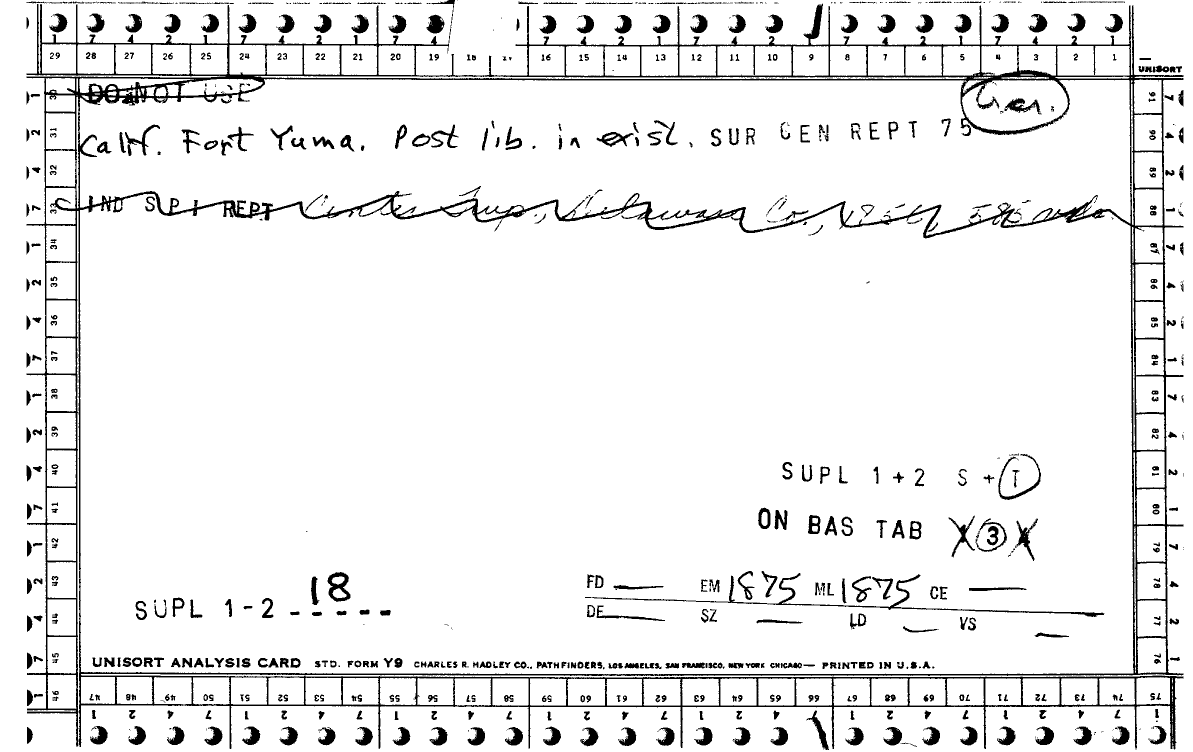 7 4 2 1 7 4 2 1 7 4 7 4 2 1 7 4 2 1 7 4 2 1 7 4 2 1
29 28 27 26 25 24 23 22 21 20 19 18 16 15 14 13 12 11 10 9 8 7 6 5 4 3 2 1
UNISORT
DO NOT USE
Gen.
Calif. Fort Yuma. Post lib. in exist. SUR GEN REPT 75
IND SPI REPT Center Twp., Delaware Co., 1856, 585 vols
SUPL 1+2 S+T
ON BAS TAB 3
SUPL 1-2 18
FD EM 1875 ML 1875 CE
DE SZ LD VS
UNISORT ANALYSIS CARD STD. FORM Y9 CHARLES R. HADLEY CO., PATHFINDERS, LOS ANGELES, SAN FRANCISCO, NEW YORK CHICAGO — PRINTED IN U.S.A.
47 48 49 50 51 52 53 54 55 56 57 58 59 60 61 62 63 64 65 66 67 68 69 70 71 72 73 74 75
1 2 4 7 1 2 4 7 1 2 4 7 1 2 4 7 1 2 4 7 1 2 4 7 1 2 4 7 1